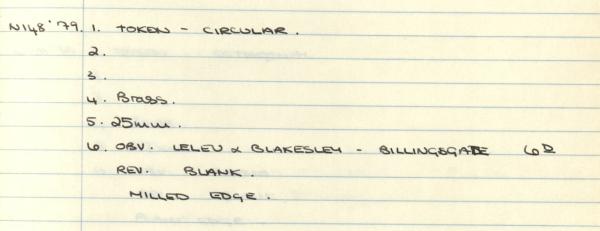 N148'79. 1. TOKEN - CIRCULAR.
2.
3.
4. Brass.
5. 25mm.
6. OBV. LELEU & BLAKESLEY - BILLINGSGATE 6D
REV. BLANK.
MILLED EDGE.